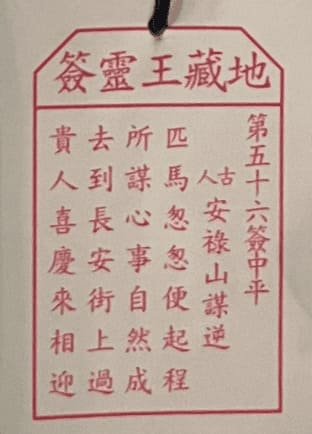 地藏王靈簽
第五十六簽中平
古人安祿山謀逆
匹馬怱怱便起程
所謀心事自然成
去到長安街上過
貴人喜慶來相迎